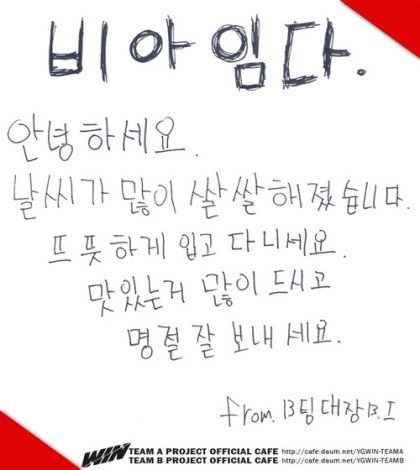 비아임다.
안녕하세요.
날씨가 많이 쌀쌀해졌습니다.
뜨뜻하게 입고 다니세요.
맛있는거 많이 드시고
명절 잘 보내세요.
from. B팀 대장 B.I
WIN TEAM A PROJECT OFFICIAL CAFE http://cafe.daum.net/YGWIN-TEAMA
TEAM B PROJECT OFFICIAL CAFE http://cafe.daum.net/YGWIN-TEAMB